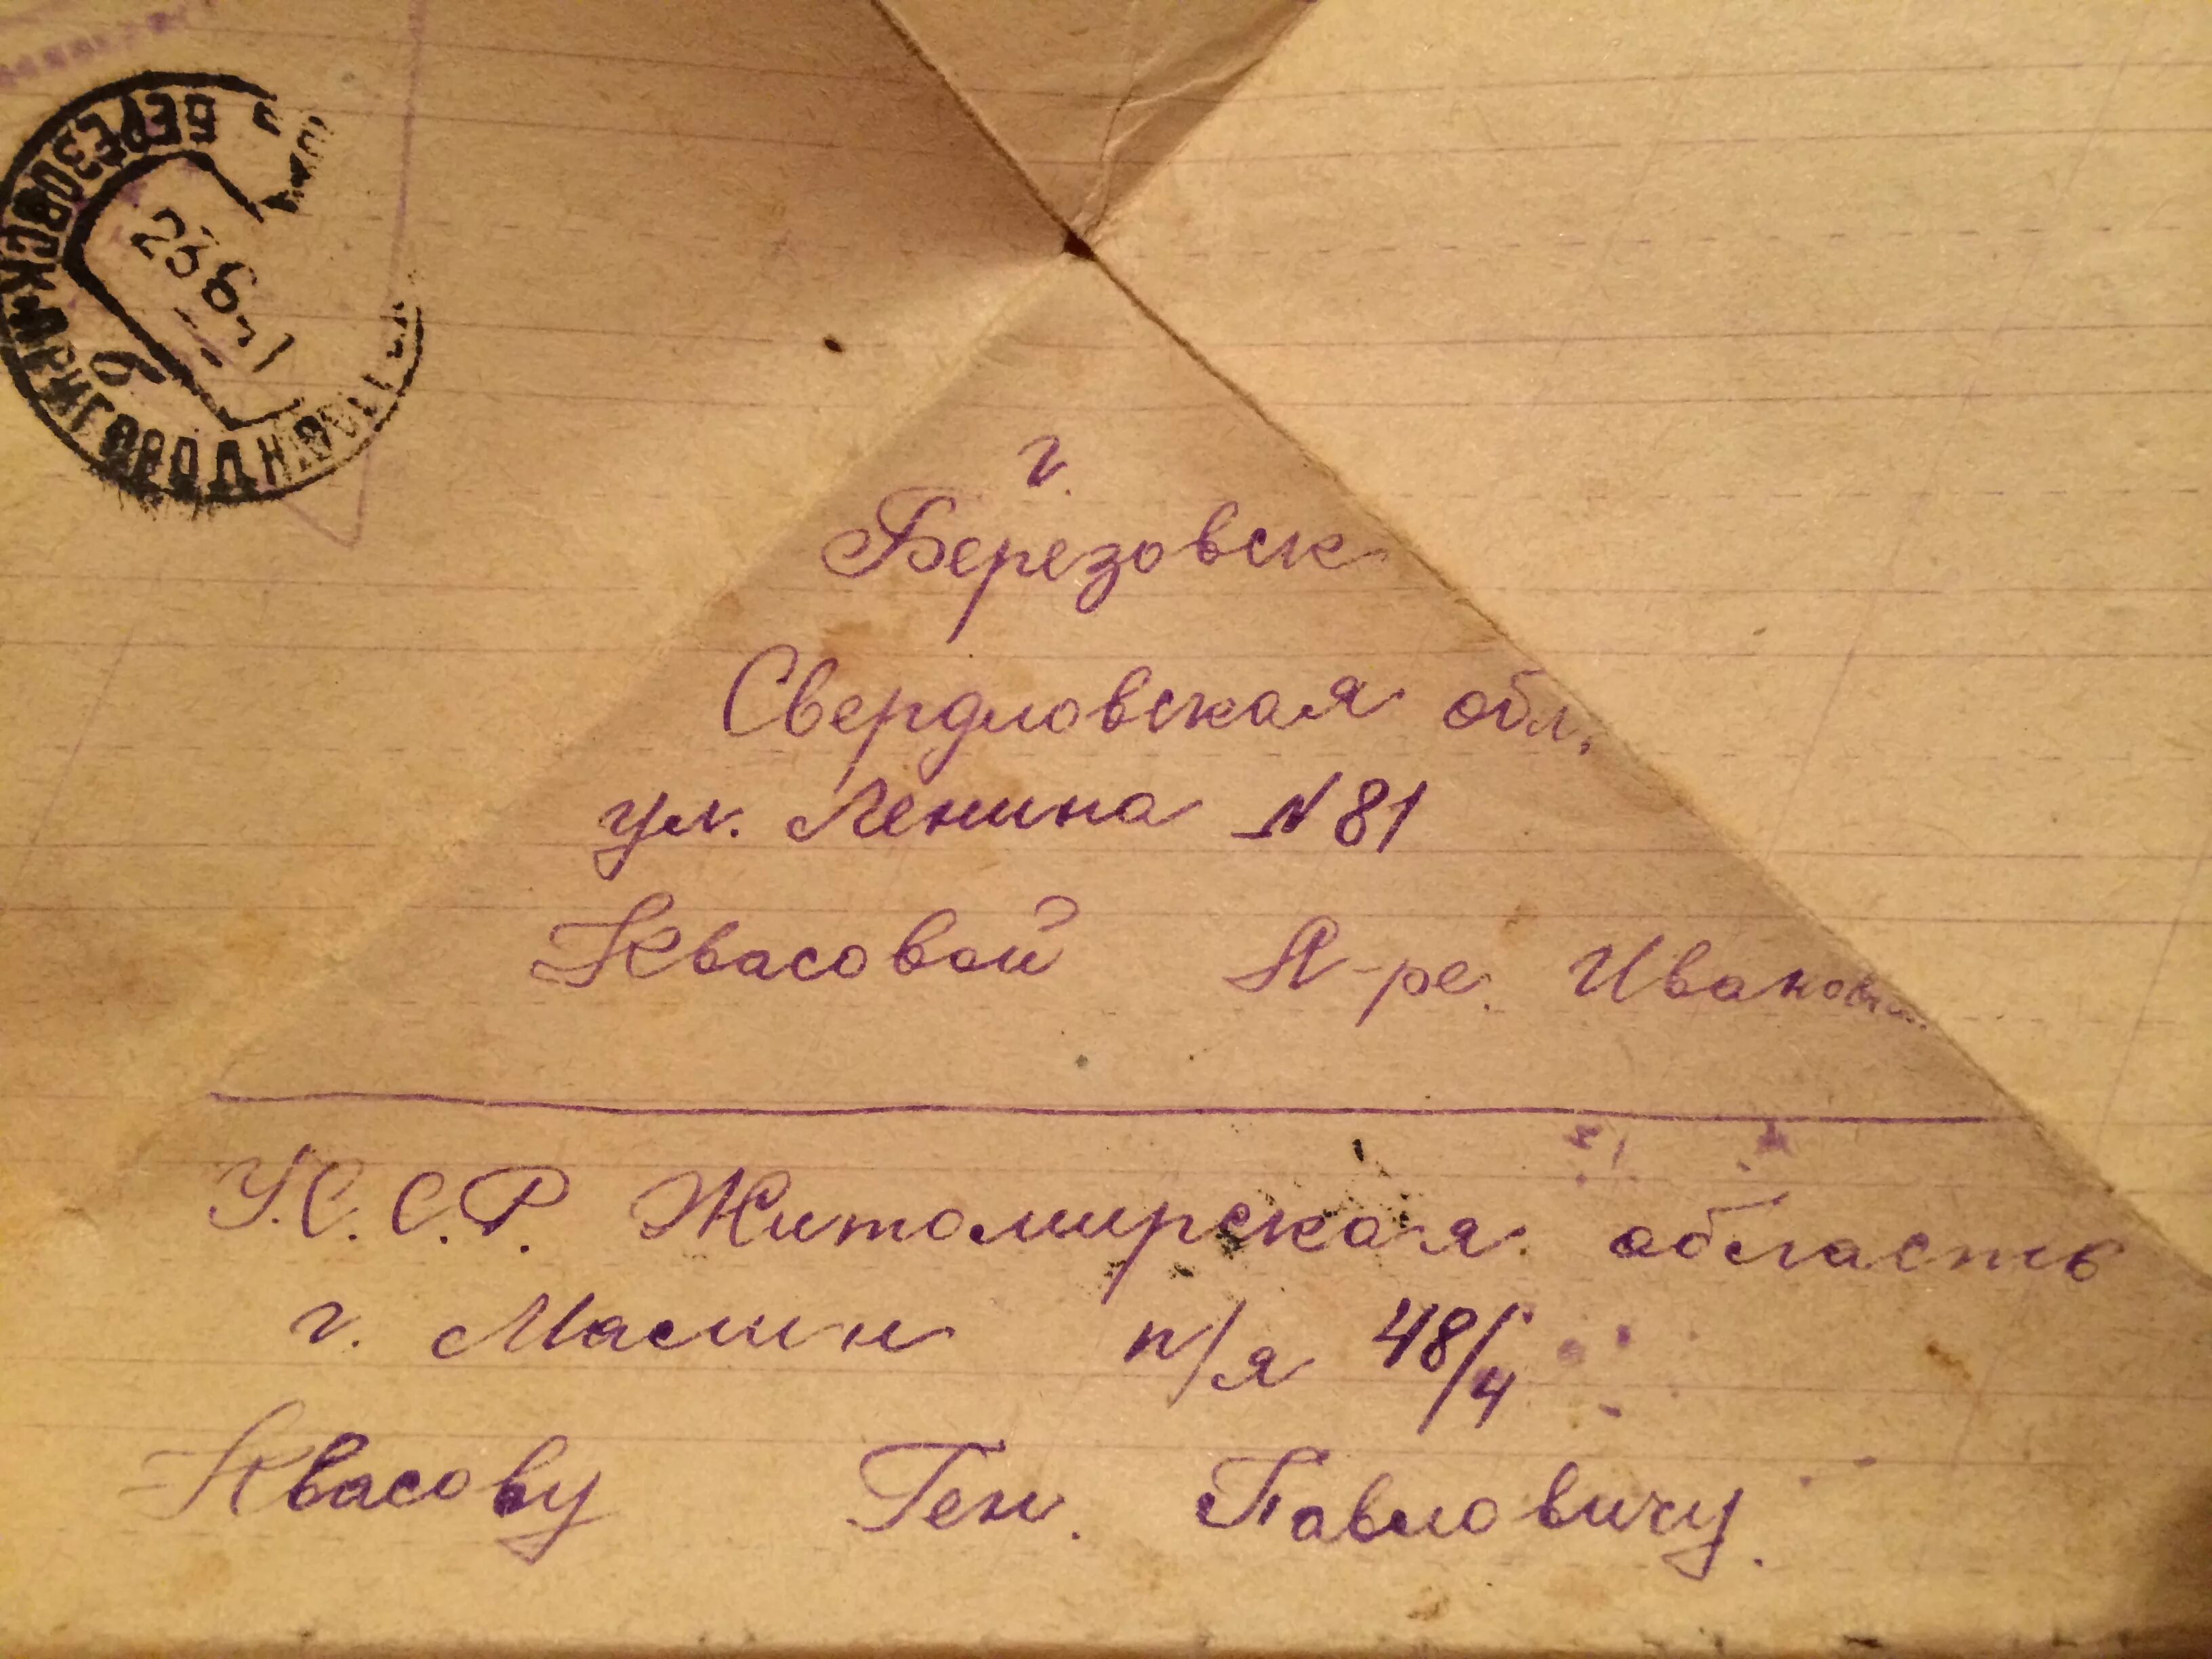 БЕРЕЗОВСКИЙ ПРИГОРОДН
23 6
б
г.
Березовск
Свердловская обл.
ул. Ленина N 81
Квасовой А-ре. Ивановн.
У.С.С.Р. Житомирская область
г. Маслин п/я 48/4
Квасову Ген. Павловичу.